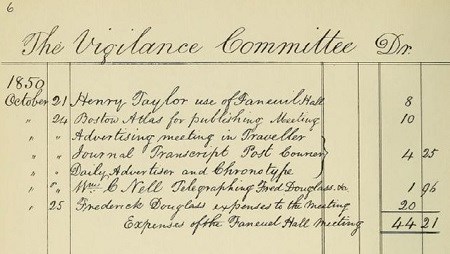 6
The Vigilance Committee Dr.
1850
October 21 Henry Taylor use of Faneuil Hall 8
" 24 Boston Atlas for publishing Meeting 10
" " Advertising meeting in Traveller
" " Journal Transcript Post Courier 4 25
" " Daily Advertiser and Chronotype
" " Wm. C Nell Telegraphing Fred Douglass. &c 1 96
" 25 Frederick Douglass expenses to the meeting 20
Expenses of the Faneuil Hall Meeting 44 21